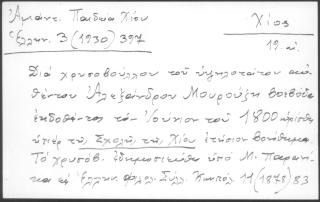 Ἀμάντ. Παιδεία Χίου
Ἑλλην. 3 (1930) 397
Χίος
19. αἰ.
Διὰ χρυσοβούλλου τοῦ ὑψηλοτάτου αὐθ-
θέντου Ἀλεξάνδρου Μουρούζη βοεβόδα
ἐκδοθέντος τὸν Ἰούνιον τοῦ 1800 ὡρίσθη
ὑπὲρ τῆς Σχολῆς τῆς Χίου ἐτήσιον βοήθημα
Τὸ χρυσόβ. ἐδημοσιεύθη ὑπὸ Μ. Παρανί-
κα ἐν Ἑλλην. Φιλολ. Συλλ. Κωνπόλ. 11 (1878) 83